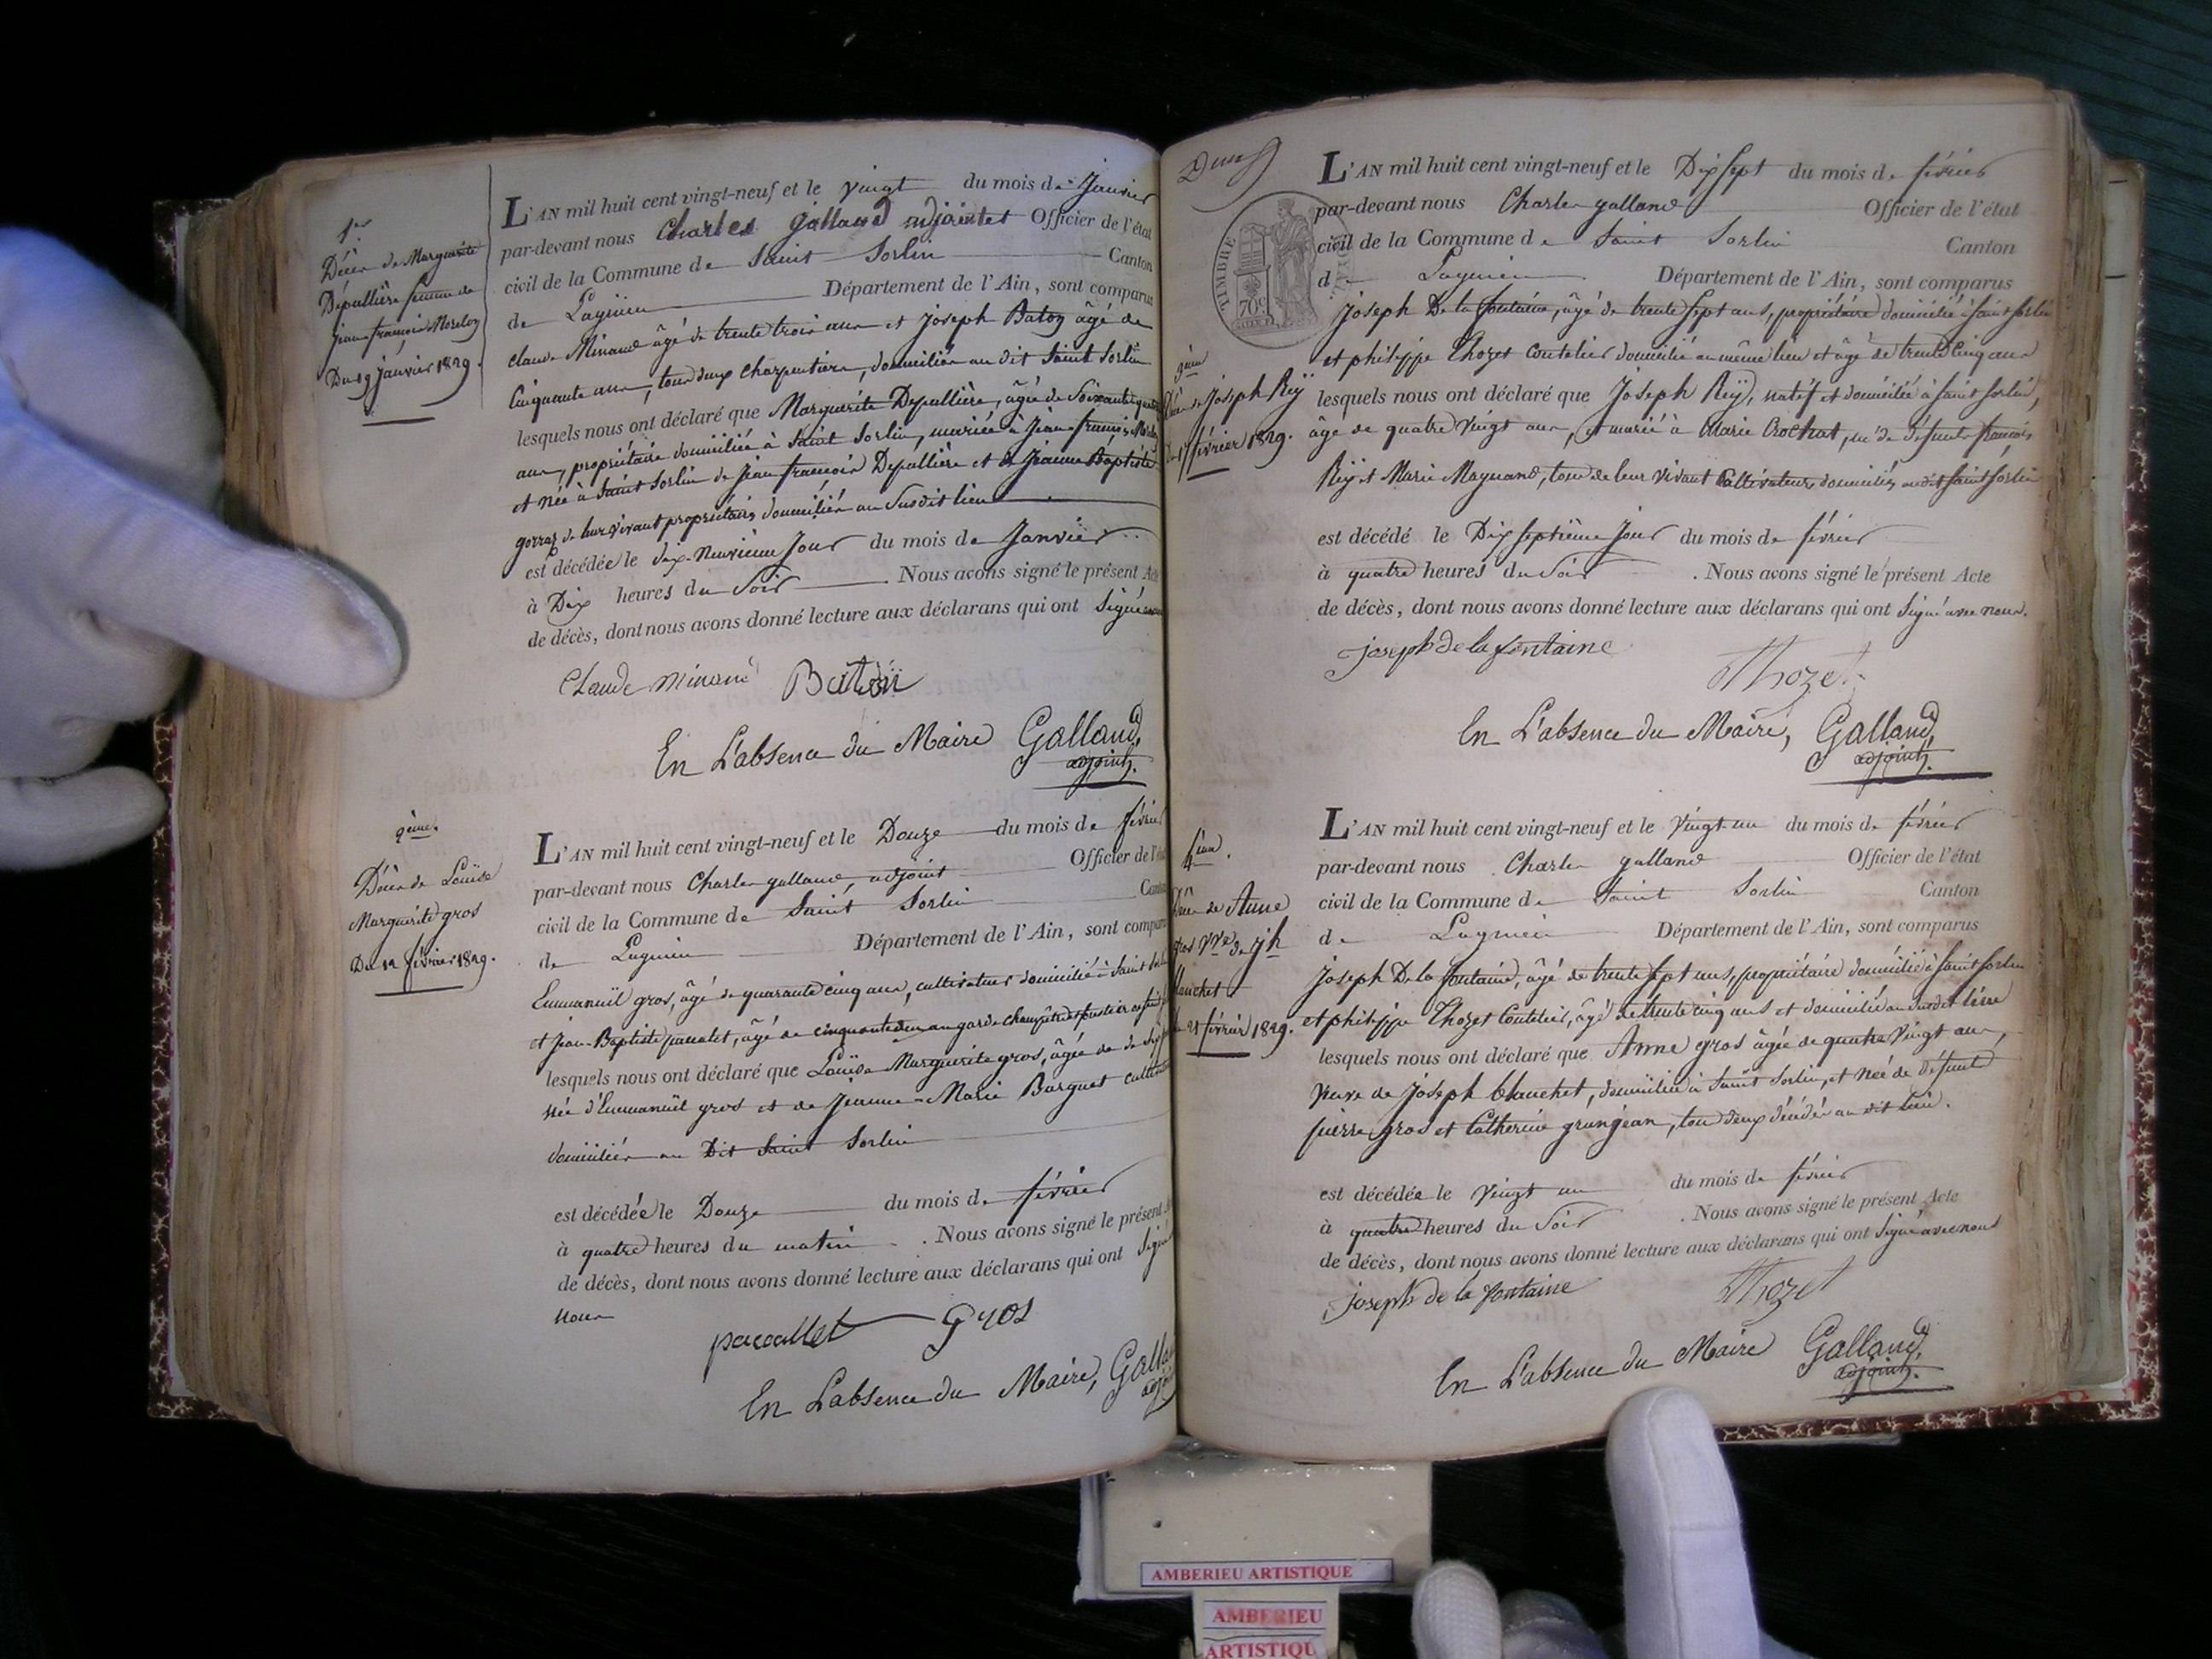 1er
Décès de Marguerite
Depullière femme de
jean françois Morelon
Du 19 janvier 1829.
L'AN mil huit cent vingt-neuf et le vingt du mois de Janvier
par-devant nous Charles galland adjoint Officier de l'état
civil de la Commune de Saint Sorlin Canton
de Lagnieu Département de l'Ain, sont comparus
claude Minand âgé de trente trois ans et Joseph Baton âgé de
Cinquante ans, tous deux charpentiers, domiciliés au dit Saint Sorlin
lesquels nous ont déclaré que Marguerite Depullière, âgée de Soixante
ans, propriétaire domiciliée à Saint Sorlin, mariée à Jean françois
et née à Saint Sorlin de Jean françois Depullière et de Jeanne Baptiste
gorraz de leur vivant propriétaires domiciliés au Susdit lieu
est décédée le dix-Neuvième Jour du mois de Janvier
à Dix heures du Soir . Nous avons signé le présent Acte
de décès, dont nous avons donné lecture aux déclarans qui ont Signé
Claude minand
En L'absence du Maire Galland,
adjoint.
2ème.
Décès de Louise
Marguerite gros
Du 12 février 1829.
L'AN mil huit cent vingt-neuf et le Douze du mois de février
par-devant nous Charles galland, adjoint Officier de l'état
civil de la Commune de Saint Sorlin Canton
de Lagnieu Département de l'Ain, sont comparus
Emmanuël gros, âgé de quarante cinq ans, cultivateur domicilié à Saint
et Jean-Baptiste pacallet, âgé de cinquante deux ans garde champêtre
lesquels nous ont déclaré que Louise Marguerite gros, âgée de
née d'Emmanuël gros et de Jeanne-Marie Barguet
domiciliés au Dit Saint Sorlin
est décédée le Douze du mois de février
à quatre heures du matin . Nous avons signé le présent
de décès, dont nous avons donné lecture aux déclarans qui ont Signé
nous
pacallet Gros
En L'absence du Maire, Galland
Deux
TIMBRE ROYAL
70c
L'AN mil huit cent vingt-neuf et le Dix Sept du mois de février
par-devant nous Charles galland Officier de l'état
civil de la Commune de Saint Sorlin Canton
de Lagnieu Département de l'Ain, sont comparus
3ème
Décès de Joseph Reÿ
17 février 1829.
Joseph De la fontaine, âgé de trente Sept ans, propriétaire domicilié à Saint Sorlin
et philippe Thozet Coutelier domicilié au même lieu et âgé de trente Cinq ans
lesquels nous ont déclaré que Joseph Reÿ, natif et domicilié à Saint Sorlin,
âge de quatre Vingt ans, et marié à Marie Crochat, né de défunts françois
Reÿ et Marie Maynand, tous de leur vivant Cultivateurs domiciliés au dit Saint Sorlin
est décédé le Dix Septième Jour du mois de février
à quatre heures du Soir . Nous avons signé le présent Acte
de décès, dont nous avons donné lecture aux déclarans qui ont Signé avec nous.
joseph de la fontaine Thozet
En L'absence du Maire, Galland,
adjoint.
4ème.
Décès de Anne
gros Vve de Jh
Blanchet
21 février 1829.
L'AN mil huit cent vingt-neuf et le Vingt un du mois de février
par-devant nous Charles galland Officier de l'état
civil de la Commune de Saint Sorlin Canton
de Lagnieu Département de l'Ain, sont comparus
Joseph De la fontaine, âgé de trente Sept ans, propriétaire domicilié à Saint Sorlin
et philippe Thozet Coutelier, âgé de trente cinq ans et domicilié au Susdit lieu
lesquels nous ont déclaré que Anne gros âgée de quatre Vingt ans,
veuve de Joseph blanchet, domiciliée à Saint Sorlin, et née de défunts
pierre gros et Catherine granjean, tous deux décédés au dit lieu.
est décédée le Vingt un du mois de février
à quatre heures du Soir . Nous avons signé le présent Acte
de décès, dont nous avons donné lecture aux déclarans qui ont Signé avec nous
joseph de la fontaine Thozet
En L'absence du Maire Galland,
adjoint.
AMBERIEU ARTISTIQUE
AMBERIEU
ARTISTIQU